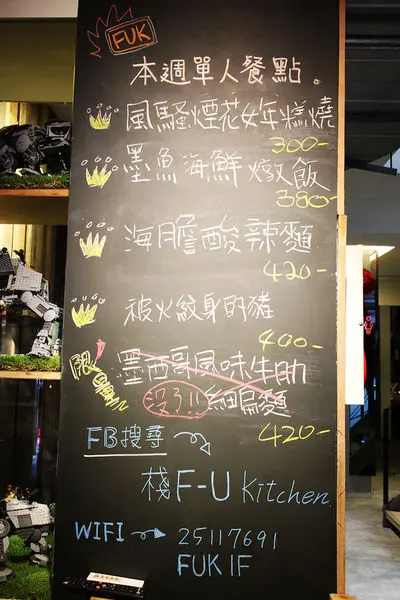 FUK
本週單人餐點。
風騷煙花女年糕燒
300-
墨魚海鮮燉飯
380-
海膽酸辣麵
420-
被火紋身的豬
400-
限量!!
墨西哥風味牛肋
沒了!! 細扁麵
420-
FB搜尋
棧F-U Kitchen.
WIFI 25117691
FUK IF